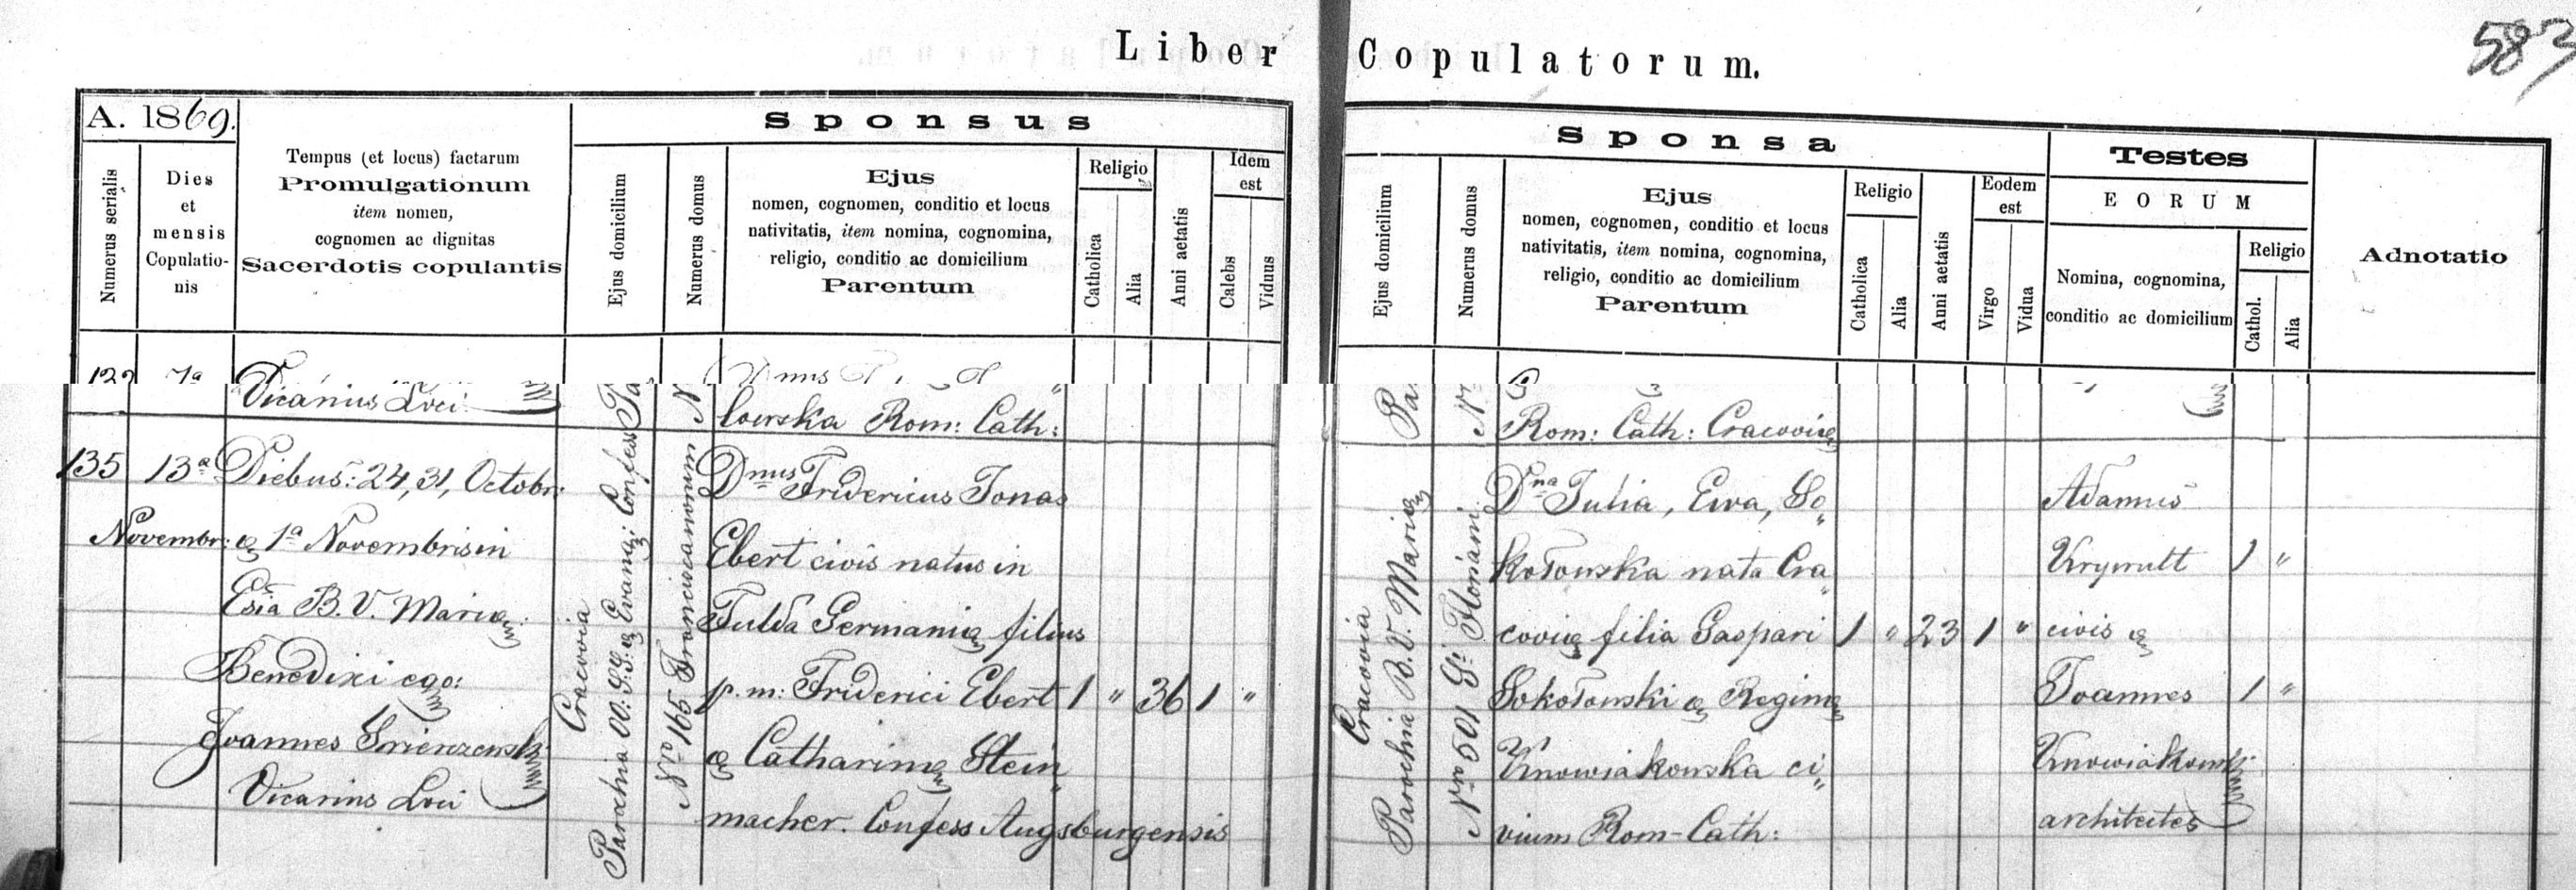 583
Liber Copulatorum.
A. 1869.
Numerus serialis
Dies
et
mensis
Copulatio-
nis
Tempus (et locus) factarum
Promulgationum
item nomen,
cognomen ac dignitas
Sacerdotis copulantis
Sponsus
Ejus domicilium
Numerus domus
Ejus
nomen, cognomen, conditio et locus
nativitatis, item nomina, cognomina,
religio, conditio ac domicilium
Parentum
Religio
Catholica
Alia
Anni aetatis
Idem
est
Calebs
Viduus
Sponsa
Ejus domicilium
Numerus domus
Ejus
nomen, cognomen, conditio et locus
nativitatis, item nomina, cognomina,
religio, conditio ac domicilium
Parentum
Religio
Catholica
Alia
Anni aetatis
Eodem
est
Virgo
Vidua
Testes
EORUM
Nomina, cognomina,
conditio ac domicilium
Religio
Cathol.
Alia
Adnotatio
Vicarius Loci
lowska Rom: Cath:
Rom: Cath: Cracoviæ
135
13ª
Novembr:
Diebus: 24, 31, Octobr:
& 1ª Novembris in
Esia B. V. Mariæ:
Benedixi ego:
Joannes
Vicarius Loci
Cracovia
Parochia OO: SS: & Evang: Confess
Nro 165 Franciscanorum
Dnus Fridericus Jonas
Ebert civis natus in
Fulda Germaniæ filius
p. m: Friderici Ebert
& Catharinæ Stein„
macher. Confess Augsburgensis
1 " 36 1 "
Cracovia
Parochia B. V. Mariæ
Nro 501 St: Floriani
Dna Julia, Ewa, So„
kołowska nata Cra„
coviæ filia Gaspari
Sokołowski & Reginæ
Knowiakowska ci„
vium Rom-Cath:
1 " 23 1 "
Adamus
Krywult
civis &
Joannes
Knowiakowski
architectes
1 "
1 "